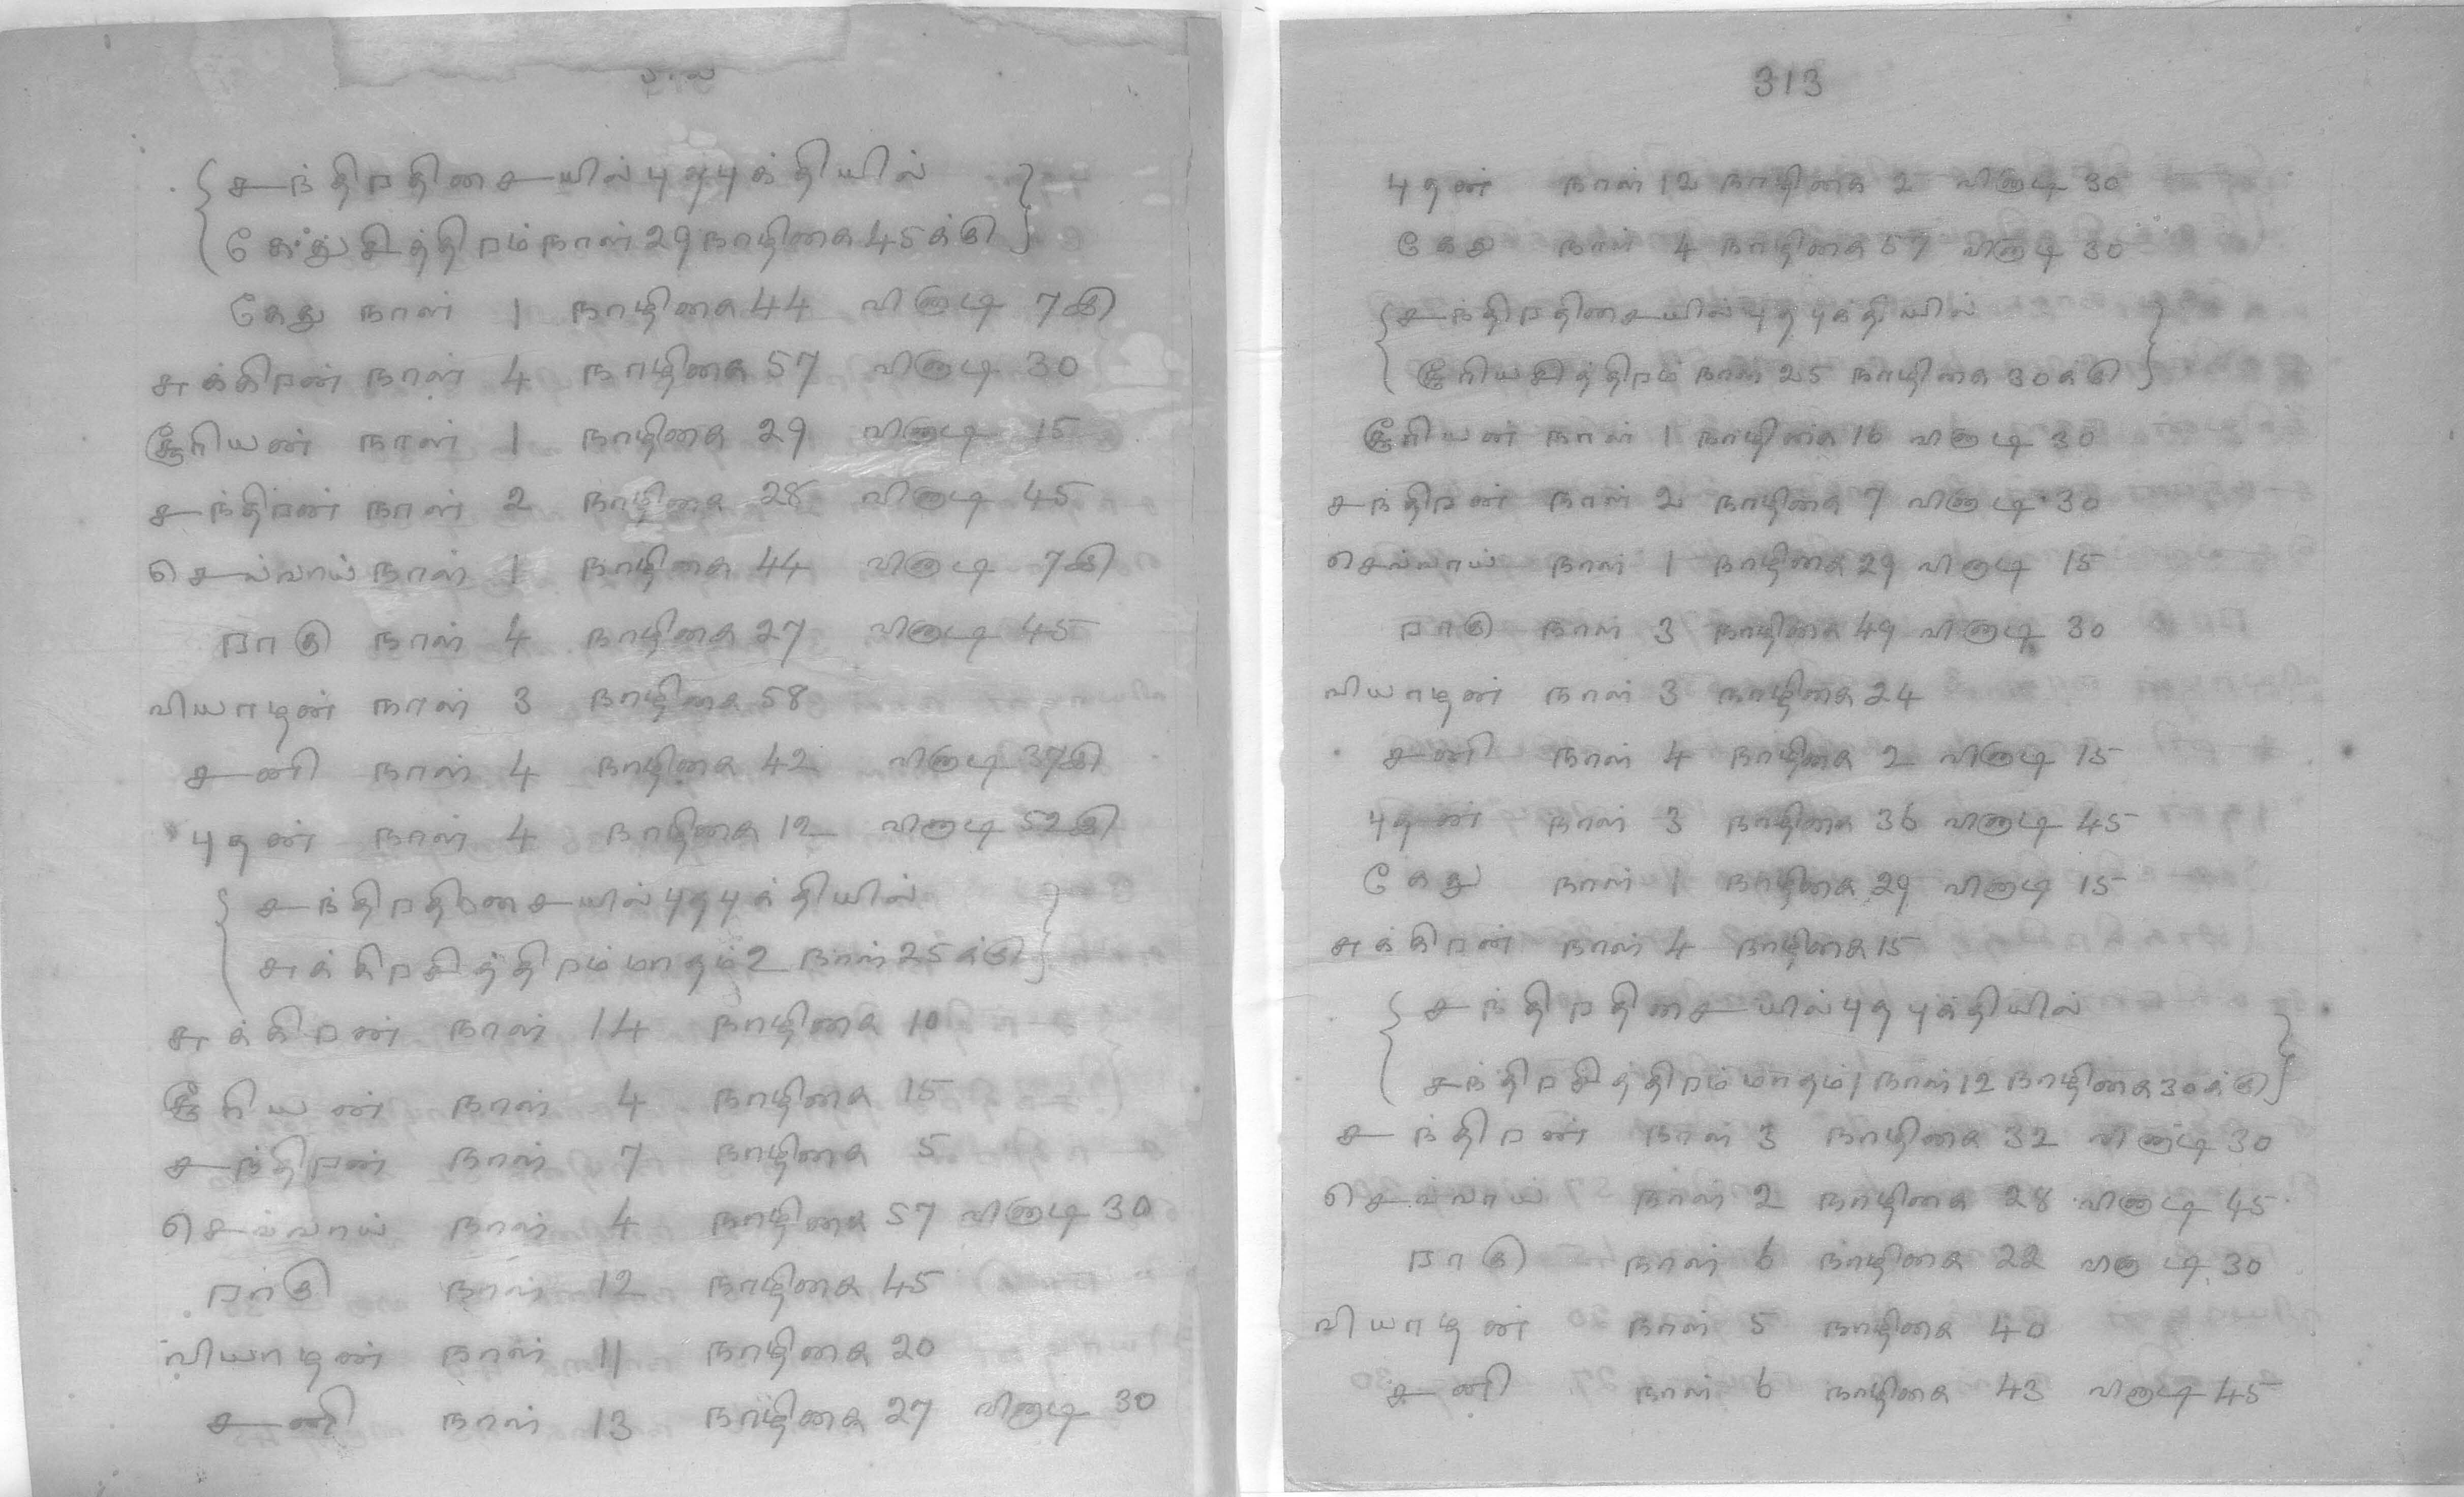 { சந்திறதிசையில்புதபுக்தியில் }
{ கேத்துசித்திறம்நாள்29நாழிகை45க்கு }
கேது நாள் 1 நாழிகை 44 விநாடி 7இ
சுக்கிறன் நாள் 4 நாழிகை 57 விநாடி 30
சூரியன் நாள் 1 நாழிகை 29 விநாடி 15
சந்திறன் நாள் 2 நாழிகை 28 விநாடி 45
செவ்வாய் நாள் 1 நாழிகை 44 விநாடி 7இ
றாகு நாள் 4 நாழிகை 27 விநாடி 45
வியாழன் நாள் 3 நாழிகை 58
சனி நாள் 4 நாழிகை 42 விநாடி 37இ
புதன் நாள் 4 நாழிகை 12 விநாடி 52இ
{ சந்திறதிசையில்புதபுக்தியில் }
{ சுக்கிறசித்திறம்மாதம்2 நாள்25க்கு }
சுக்கிறன் நாள் 14 நாழிகை 10
சூரியன் நாள் 4 நாழிகை 15
சந்திறன் நாள் 7 நாழிகை 5
செவ்வாய் நாள் 4 நாழிகை 57 விநாடி 30
றாகு நாள் 12 நாழிகை 45
வியாழன் நாள் 11 நாழிகை 20
சனி நாள் 13 நாழிகை 27 விநாடி 30
313
புதன் நாள் 12 நாழிகை 2 விநாடி 30
கேது நாள் 4 நாழிகை 57 விநாடி 30
{ சந்திறதிசையில்புதபுக்தியில் }
{ சூரியசித்திறம் நாள் 25 நாழிகை 30க்கு }
சூரியன் நாள் 1 நாழிகை 16 விநாடி 30
சந்திறன் நாள் 2 நாழிகை 7 விநாடி 30
செவ்வாய் நாள் 1 நாழிகை 29 விநாடி 15
றாகு நாள் 3 நாழிகை 49 விநாடி 30
வியாழன் நாள் 3 நாழிகை 24
சனி நாள் 4 நாழிகை 2 விநாடி 15
புதன் நாள் 3 நாழிகை 36 விநாடி 45
கேது நாள் 1 நாழிகை 29 விநாடி 15
சுக்கிறன் நாள் 4 நாழிகை 15
{ சந்திறதிசையில்புதபுக்தியில் }
{ சந்திறசித்திறம்மாதம்1நாள்12நாழிகை30க்கு }
சந்திறன் நாள் 3 நாழிகை 32 விநாடி 30
செவ்வாய் நாள் 2 நாழிகை 28 விநாடி 45
றாகு நாள் 6 நாழிகை 22 விநாடி 30
வியாழன் நாள் 5 நாழிகை 40
சனி நாள் 6 நாழிகை 43 விநாடி 45